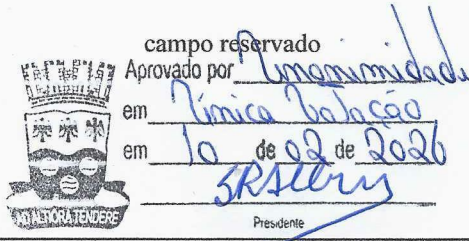 campo reservado
Aprovado por Unanimidade
em Única Votação
em 10 de 02 de 2026
Presidente
AD ALTIORA TENDERE